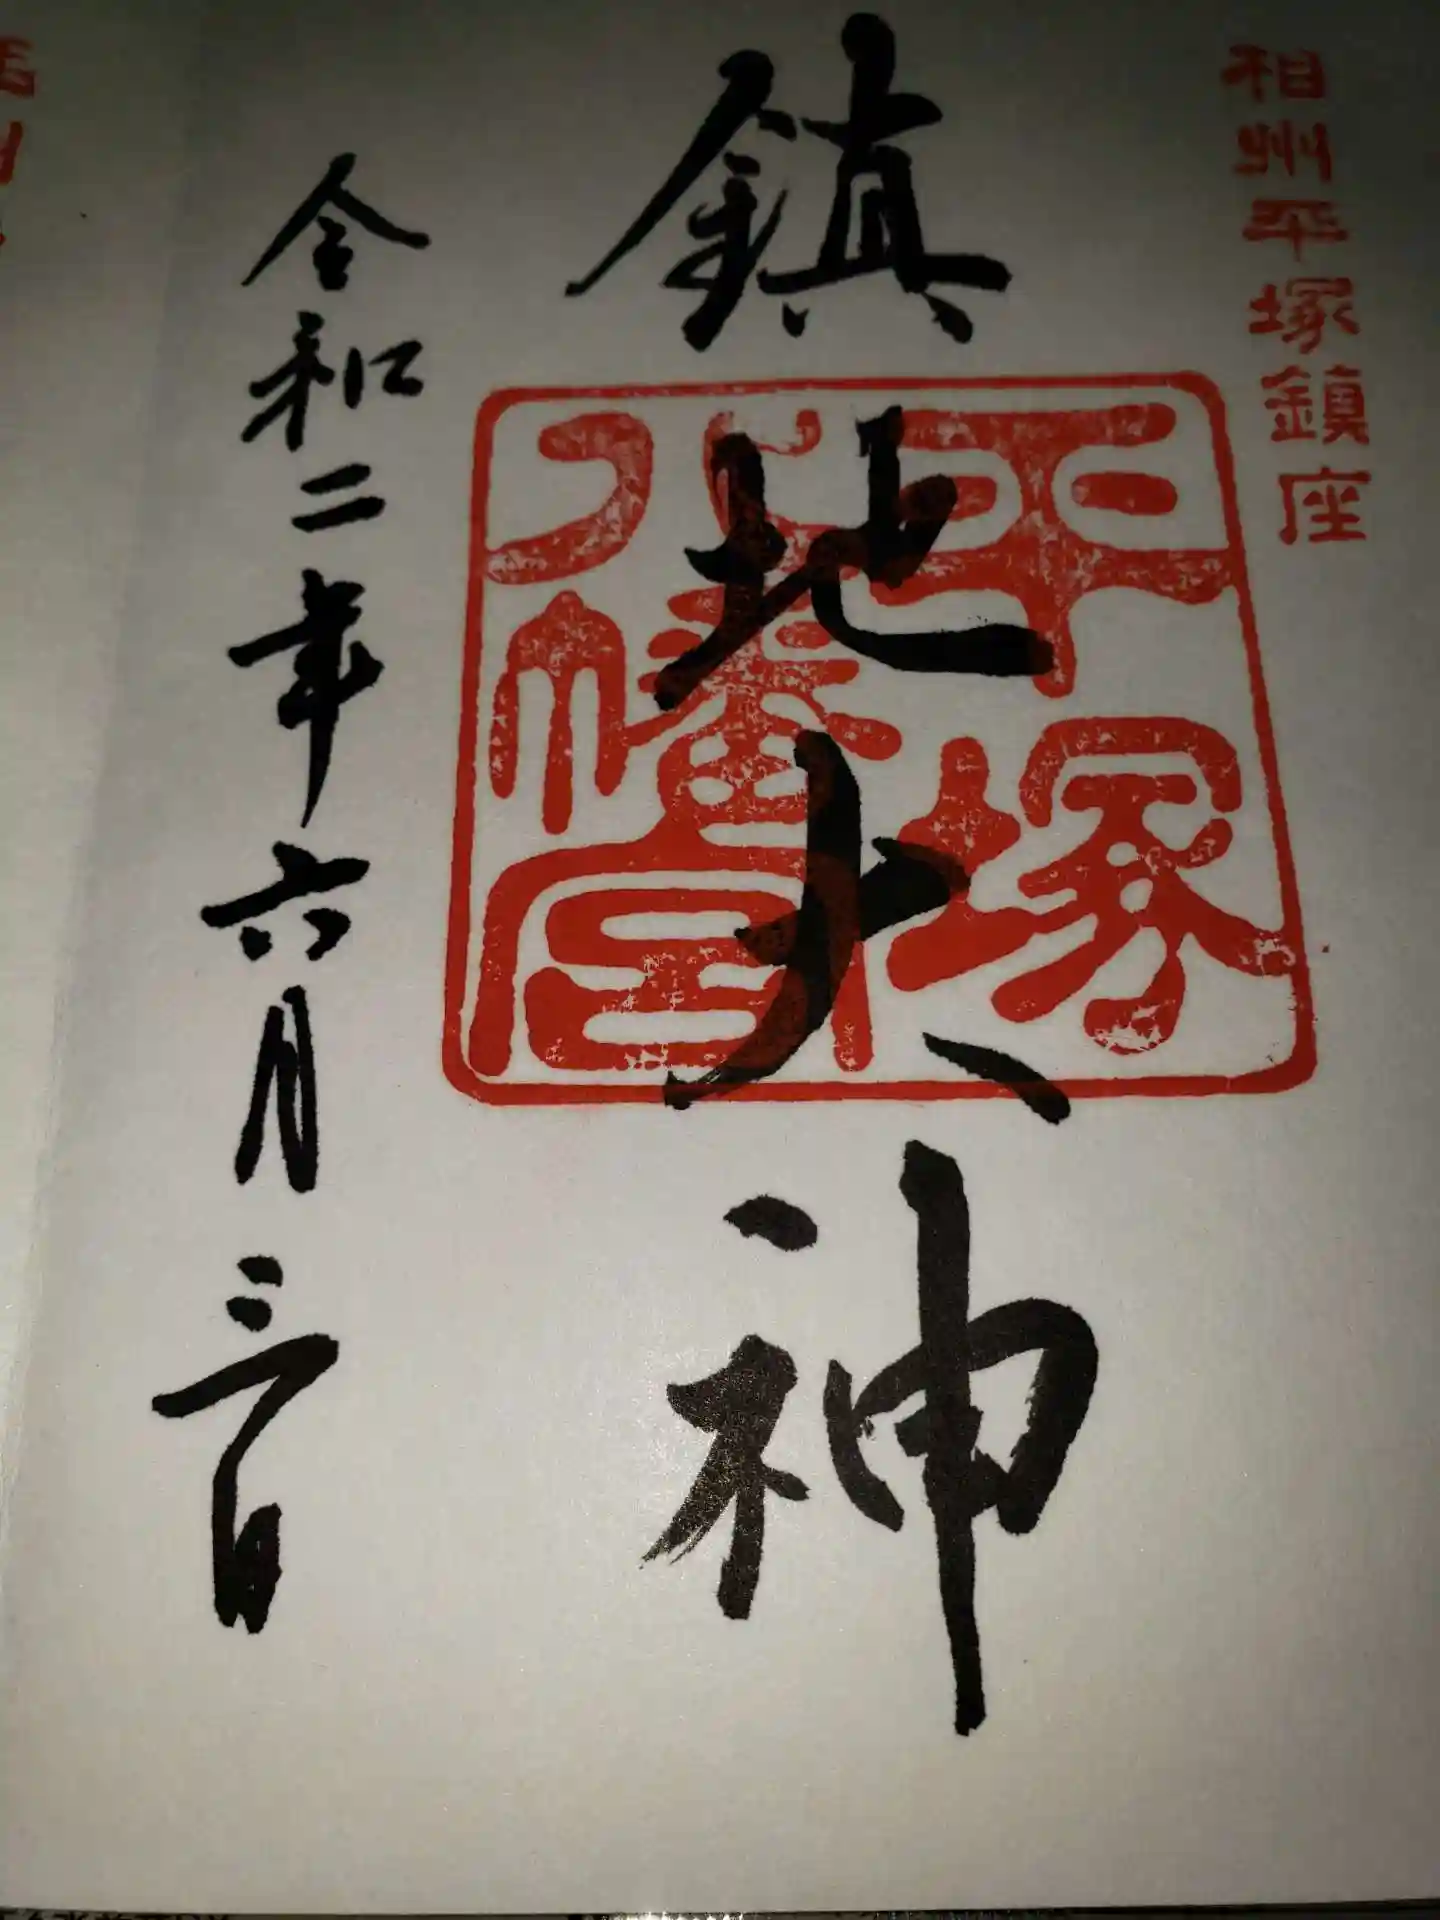 相州平塚鎮座
鎮地大神
平塚
八幡宮
令和二年六月三日